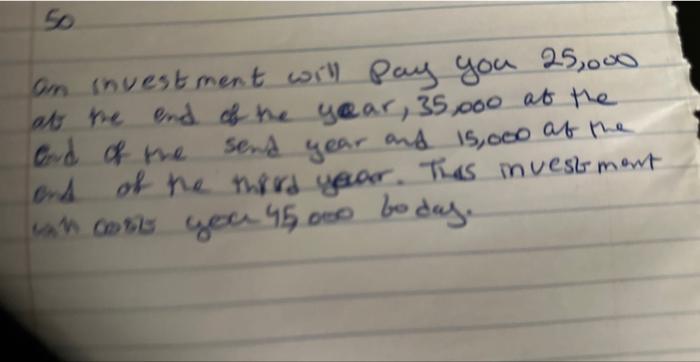 50
An investment will Pay you 25,000
at the end of he year, 35,000 at the
end of the send year and 15,000 at the
end of the third year. This investment
costs you 45,000 today.